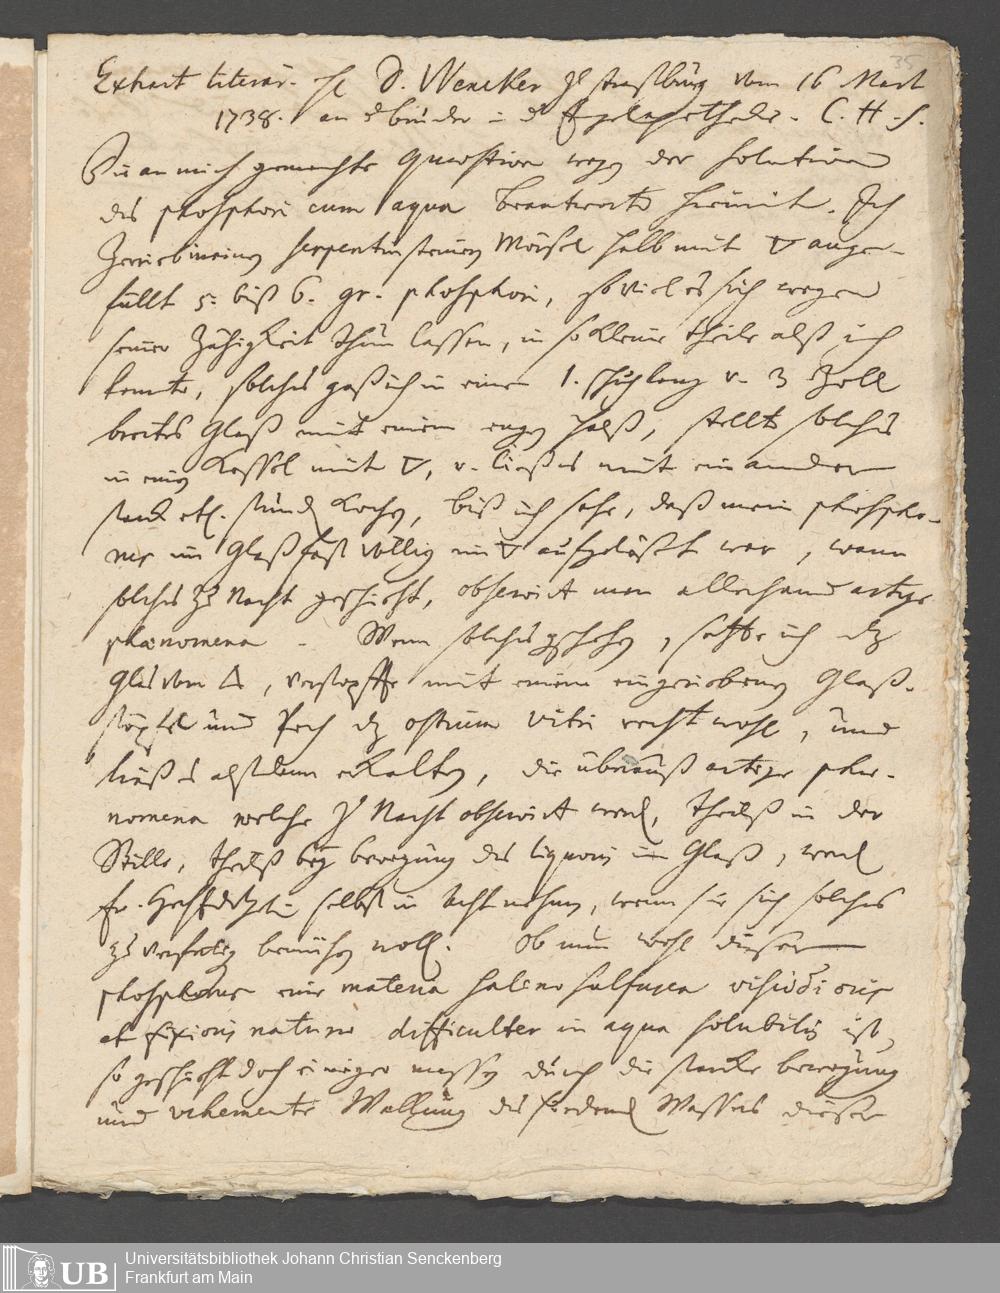 35
Extract literar. H D. Wencker zu Straßburg vom 16 Mart
1738. an d bruder in d Engelapothecke. C. H. S.
Die an mich gemachte Quaestion wegen der solution
des phosphori cum aqua beantworte hiemit. Ich
zerrieb in einem serpentinsteinern Mörsel halb mit ▽ ange-
füllt 5. biß 6. gr. phosphori, so viel es sich wegen
seiner Zähigkeit thun lassen, in so kleine theile alß ich
konnte, solches goß ich in einen 1. schuh lang u. 3 Zoll
breites Glaß mit einem engen Halß, stellte solches
in einen Kessel mit ▽, u. ließ es mit einander
starck etl. stund kochen, biß ich sahe, daß mein phospho-
rus im Glaß fast völlig im ▽ aufgelößt war, wann
solches zu Nacht geschieht, observirt man allerhand artige
phaenomena. Wenn solches geschehen, hebte ich dz
Glas vom △, verstopffte mit einem eingeriebenen Glaß-
stöpfel und Pech dz ostium vitri recht wohl, und
ließ es alßdann erkalten, die überauß artige phae-
nomena welche zu Nacht observirt werd, theilß in der
Stille, theilß bey bewegung des liquoris im Glaß, werd
selbst in Acht nehmen, wenn sie sich solches
zu verfertig bemühen woll. Ob nun wohl dieser
phosphorus eine materia salino sulfurea
et fixioris naturae difficulter in aqua solubilis ist,
so geschieht doch einiger massen durch die starcke bewegung
und vehemente Wallung des siedend Wassers dieser
Universitätsbibliothek Johann Christian Senckenberg
Frankfurt am Main
UB